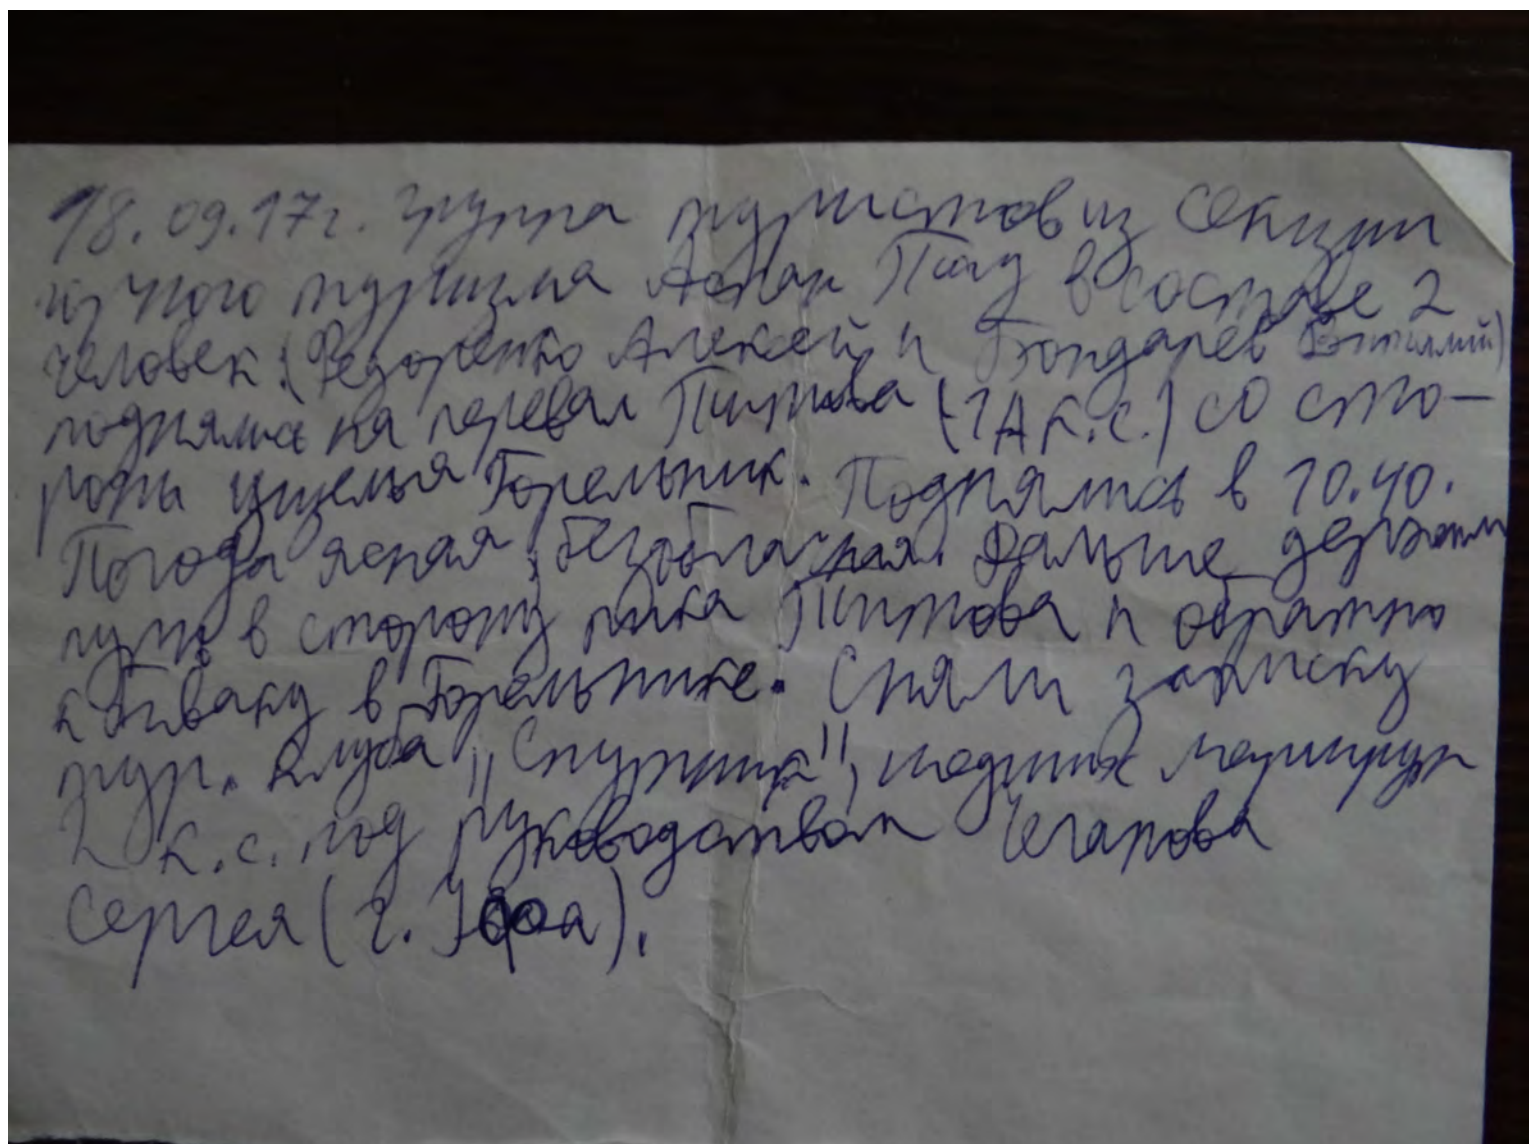 18.09.17г. группа туристов из секции
туризма Аспан Тау в составе 2
человек (Федоренко Алексей и Бондарев Виталий)
поднялись на перевал Титова (1А к.с.) со сто-
роны ущелья Горельник. Поднялись в 10.40.
Погода ясная, безоблачная. Дальше держим
путь в сторону пика Титова и обратно
к биваку в Горельнике. Сняли записку
тур. клуба "Спутник", маршрут
2 к.с. под руководством
Сергея (г. Уфа).